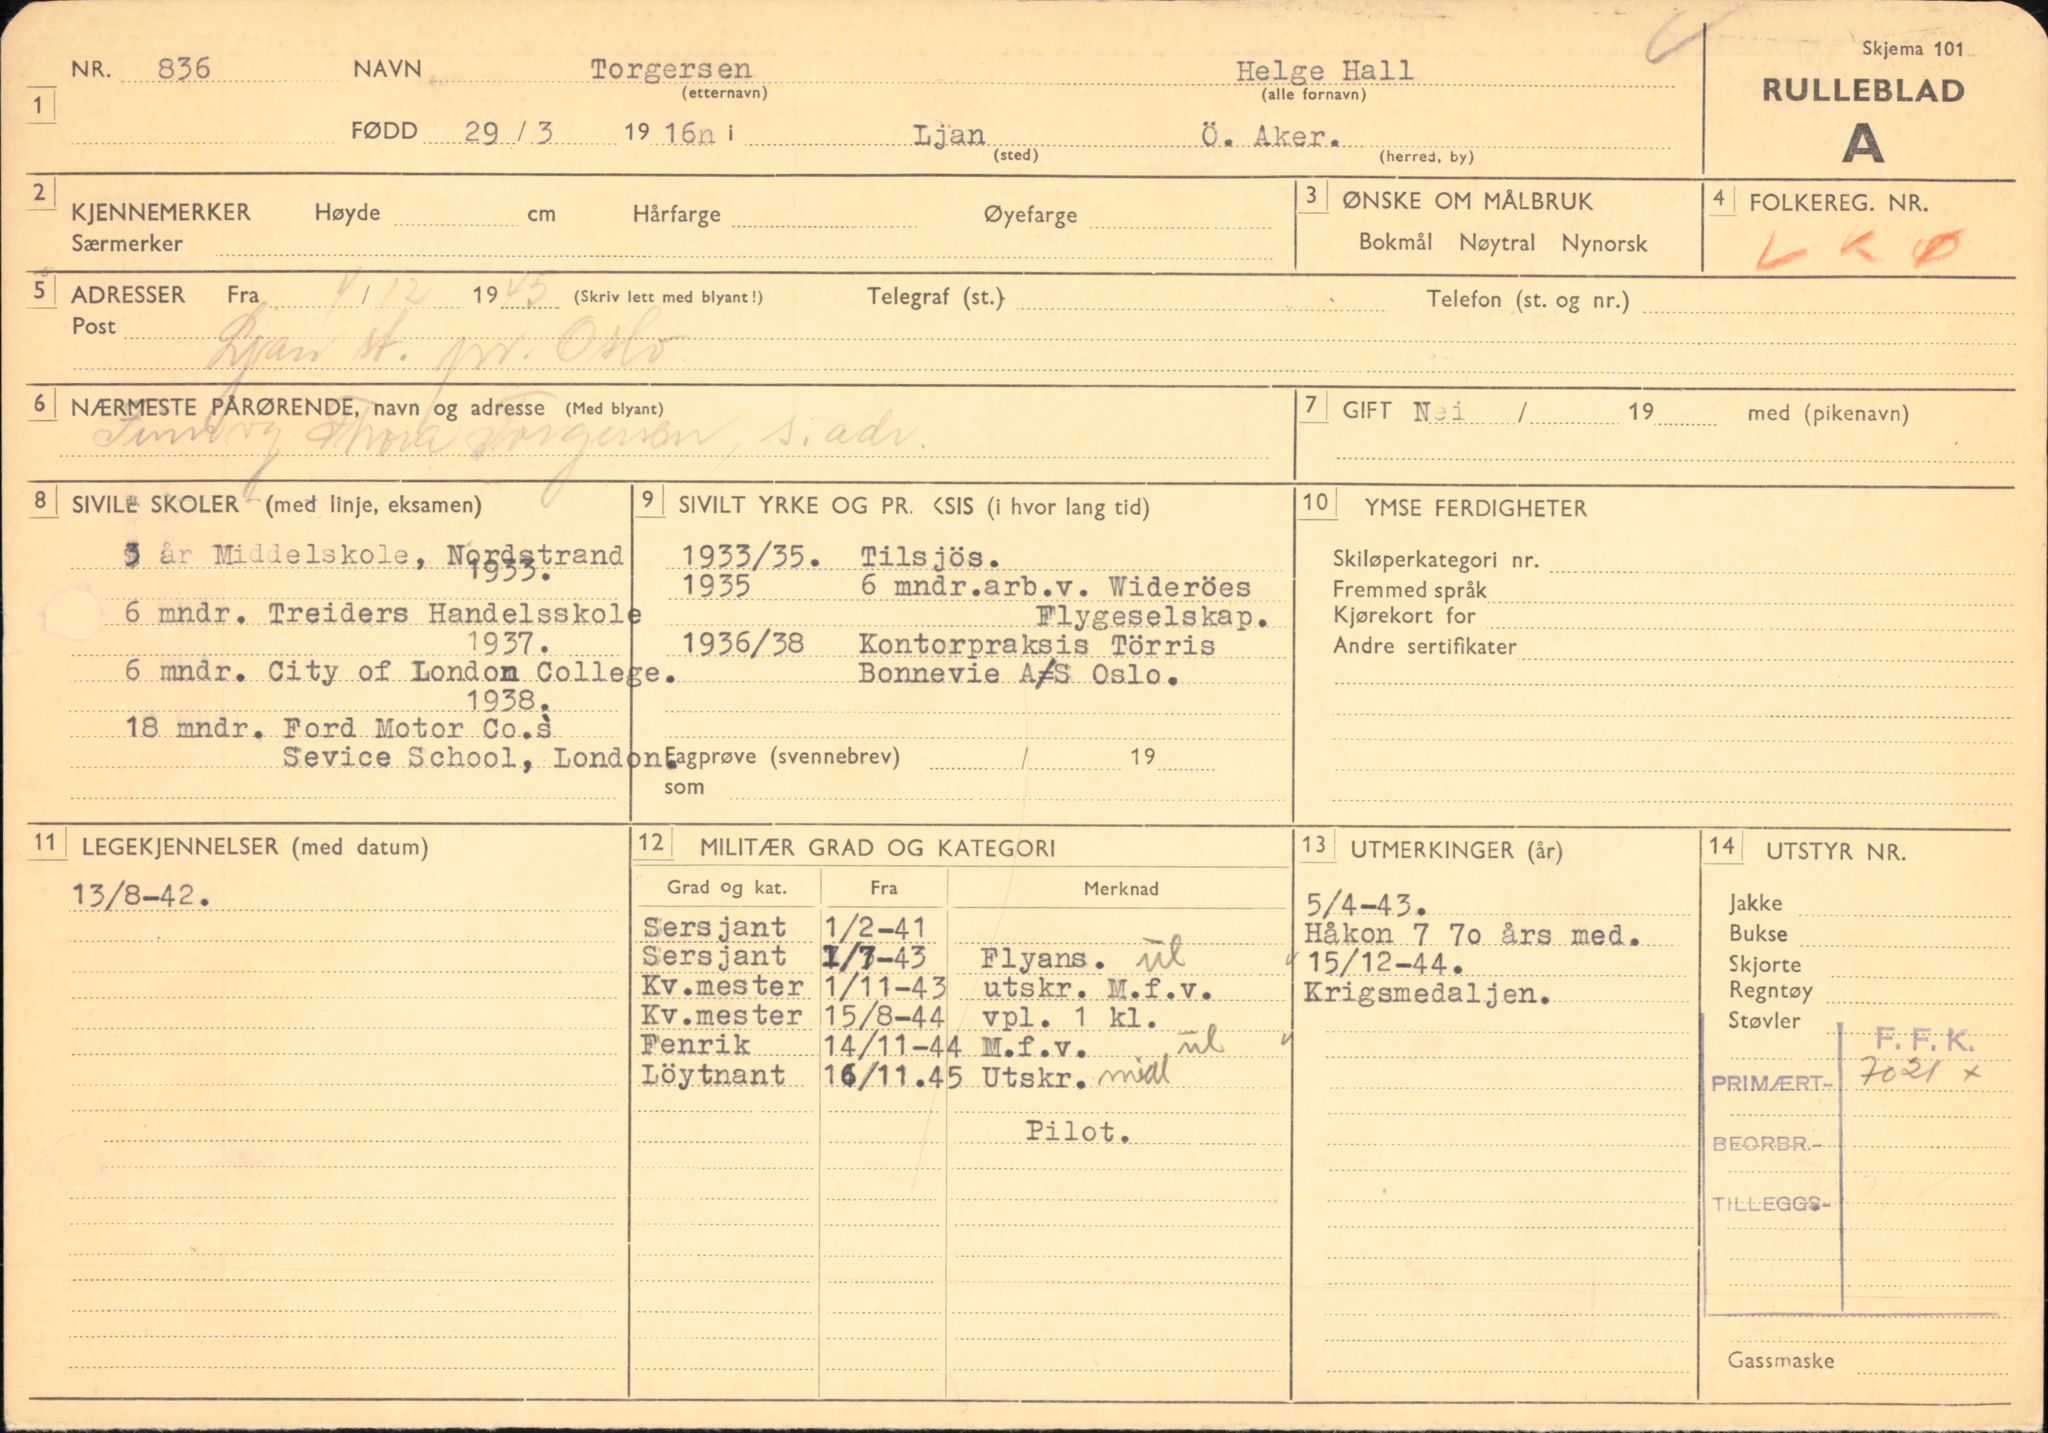 Skjema 101
RULLEBLAD
A
NR. 836 NAVN Torgersen Helge Hall
(etternavn) (alle fornavn)
1
FØDD 29 / 3 19 16n i Ljan Ö. Aker.
(sted) (herred, by)
2 KJENNEMERKER Høyde cm Hårfarge Øyefarge
Særmerker
3 ØNSKE OM MÅLBRUK
Bokmål Nøytral Nynorsk
4 FOLKEREG. NR.
L K Ø
5 ADRESSER Fra 4 / 12 19 45 (Skriv lett med blyant!) Telegraf (st.) Telefon (st. og nr.)
Post
Ljan st. pr. Oslo
6 NÆRMESTE PÅRØRENDE, navn og adresse (Med blyant)
og Thora Torgersen, s. adr.
7 GIFT Nei / 19 med (pikenavn)
8 SIVILE SKOLER (med linje, eksamen)
3 år Middelskole, Nordstrand
1933.
6 mndr. Treiders Handelsskole
1937.
6 mndr. City of London College.
1938.
18 mndr. Ford Motor Co.s
Sevice School, London.
9 SIVILT YRKE OG PR. KSIS (i hvor lang tid)
1933/35. Tilsjös.
1935 6 mndr.arb.v. Wideröes
Flygeselskap.
1936/38 Kontorpraksis Törris
Bonnevie A/S Oslo.
Fagprøve (svennebrev) / 19
som
10 YMSE FERDIGHETER
Skiløperkategori nr.
Fremmed språk
Kjørekort for
Andre sertifikater
11 LEGEKJENNELSER (med datum)
13/8-42.
12 MILITÆR GRAD OG KATEGORI
Grad og kat. Fra Merknad
Sersjant 1/2-41
Sersjant 1/7-43 Flyans. ūl
Kv.mester 1/11-43 utskr. M.f.v.
Kv.mester 15/8-44 vpl. 1 kl.
Fenrik 14/11-44 M.f.v. ūl
Löytnant 16/11.45 Utskr. midl
Pilot.
13 UTMERKINGER (år)
5/4-43.
Håkon 7 7o års med.
15/12-44.
Krigsmedaljen.
14 UTSTYR NR.
Jakke
Bukse
Skjorte
Regntøy
Støvler
F. F. K.
PRIMÆRT- 7021 x
BEORBR.-
TILLEGGS-
Gassmaske